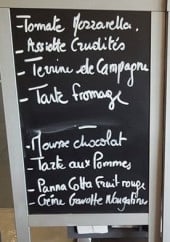 -Tomate Mozzarella.
- Assiette Crudités
- Terrine de Campagne
- Tarte fromage
- Mousse chocolat
- Tarte aux Pommes
- Panna Cotta Fruit rouge
- Crème Gavotte Nougatine